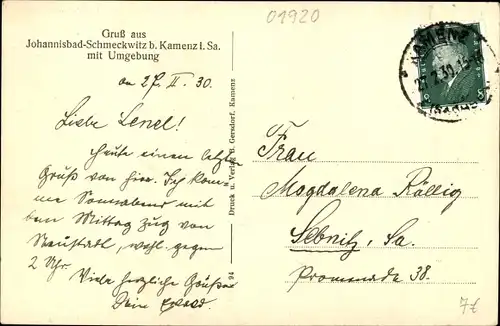 01920
Gruß aus
Johannisbad-Schmeckwitz b. Kamenz i. Sa.
mit Umgebung
27. II. 30.
Liebe Lenel!
Heute einen letzten
Gruß von hier. Ich kom-
me Sonnabend mit
dem Mittag zug von
Neustadt, wohl gegen
2 Uhr.
Viele herzliche Grüße
Dein
Druck u. Verlag B. Gersdorf, Kamenz
94
KAMENZ
(Sachsen)
Frau
Magdalena Röllig
Sebnitz, Sa.
Promenade 38.
7€